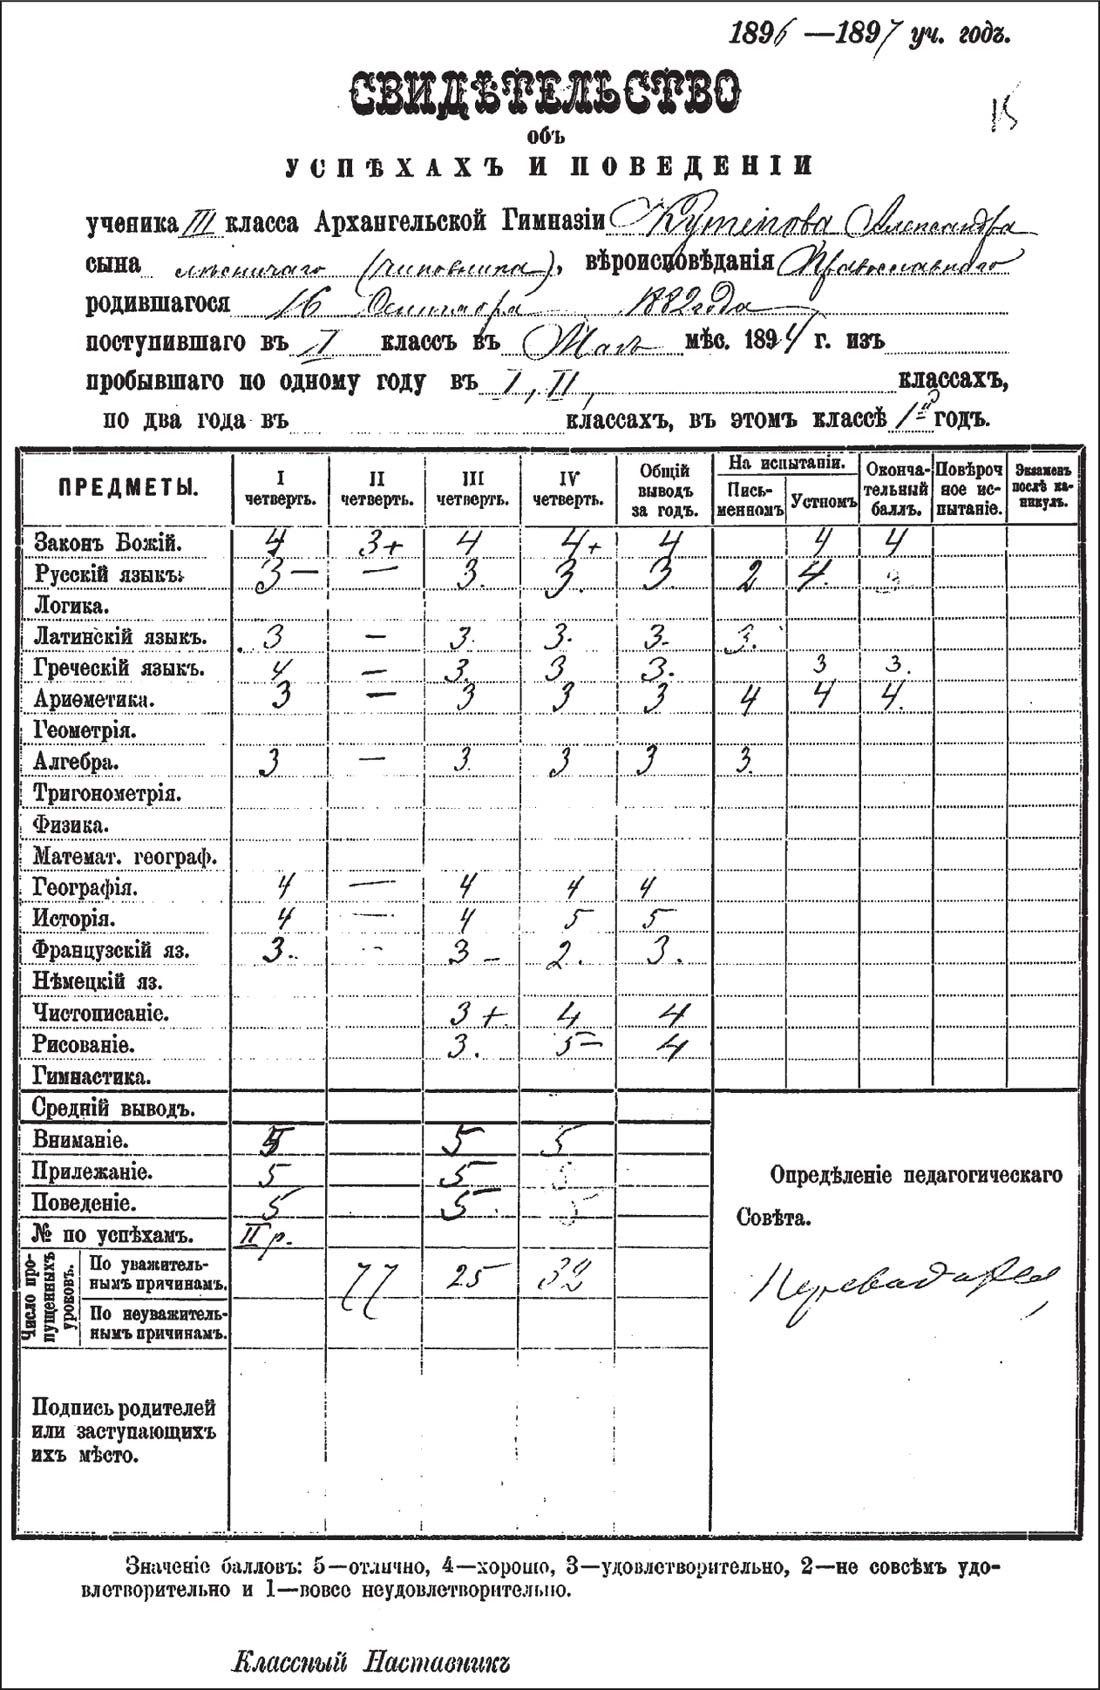 1896 —1897 уч. годъ.
СВИДѢТЕЛЬСТВО
15
объ
УСПѢХАХЪ И ПОВЕДЕНІИ
ученика III класса Архангельской Гимназіи Кутепова Александра
сына лѣсничаго (чиновника), вѣроисповѣданія Православнаго
родившагося 16 Сентября 1882 года
поступившаго въ II классъ въ Маѣ мѣс. 1894 г. изъ
пробывшаго по одному году въ I, II, классахъ,
по два года въ классахъ, въ этомъ классѣ 1й годъ.
ПРЕДМЕТЫ. I четверть. II четверть. III четверть. IV четверть. Общій выводъ за годъ. На испытаніи. Пись-менномъ Устномъ Оконча-тельный баллъ. Повѣроч ное ис-пытаніе. Экзаменъ послѣ ка-никулъ.
Законъ Божій. 4 3+ 4 4+ 4 4 4
Русскій языкъ. 3— — 3. 3. 3. 2 4. 3
Логика.
Латинскій языкъ. 3 — 3. 3. 3. 3.
Греческій языкъ. 4 — 3. 3 3. 3 3.
Ариѳметика. 3 — 3 3 3 4 4 4.
Геометрія.
Алгебра. 3 — 3 3 3 3.
Тригонометрія.
Физика.
Математ. географ.
Географія. 4 — 4 4 4
Исторія. 4 — 4 5 5
Французскій яз. 3. — 3 — 2. 3.
Нѣмецкій яз.
Чистописаніе. 3+. 4 4
Рисованіе. 3. 5— 4
Гимнастика.
Средній выводъ.
Вниманіе. 5 5 5
Прилежаніе. 5 5 5
Поведеніе. 5 5. 5
№ по успѣхамъ. II р.
Число про-пущенныхъ уроковъ.
По уважитель-нымъ причинамъ. 77 25 32
По неуважитель-нымъ причинамъ.
Опредѣленіе педагогическаго
Совѣта.
Переводится
Подпись родителей
или заступающихъ
ихъ мѣсто.
Значеніе балловъ: 5—отлично, 4—хорошо, 3—удовлетворительно, 2—не совсѣмъ удо-
влетворительно и 1—вовсе неудовлетворительно.
Классный Наставникъ